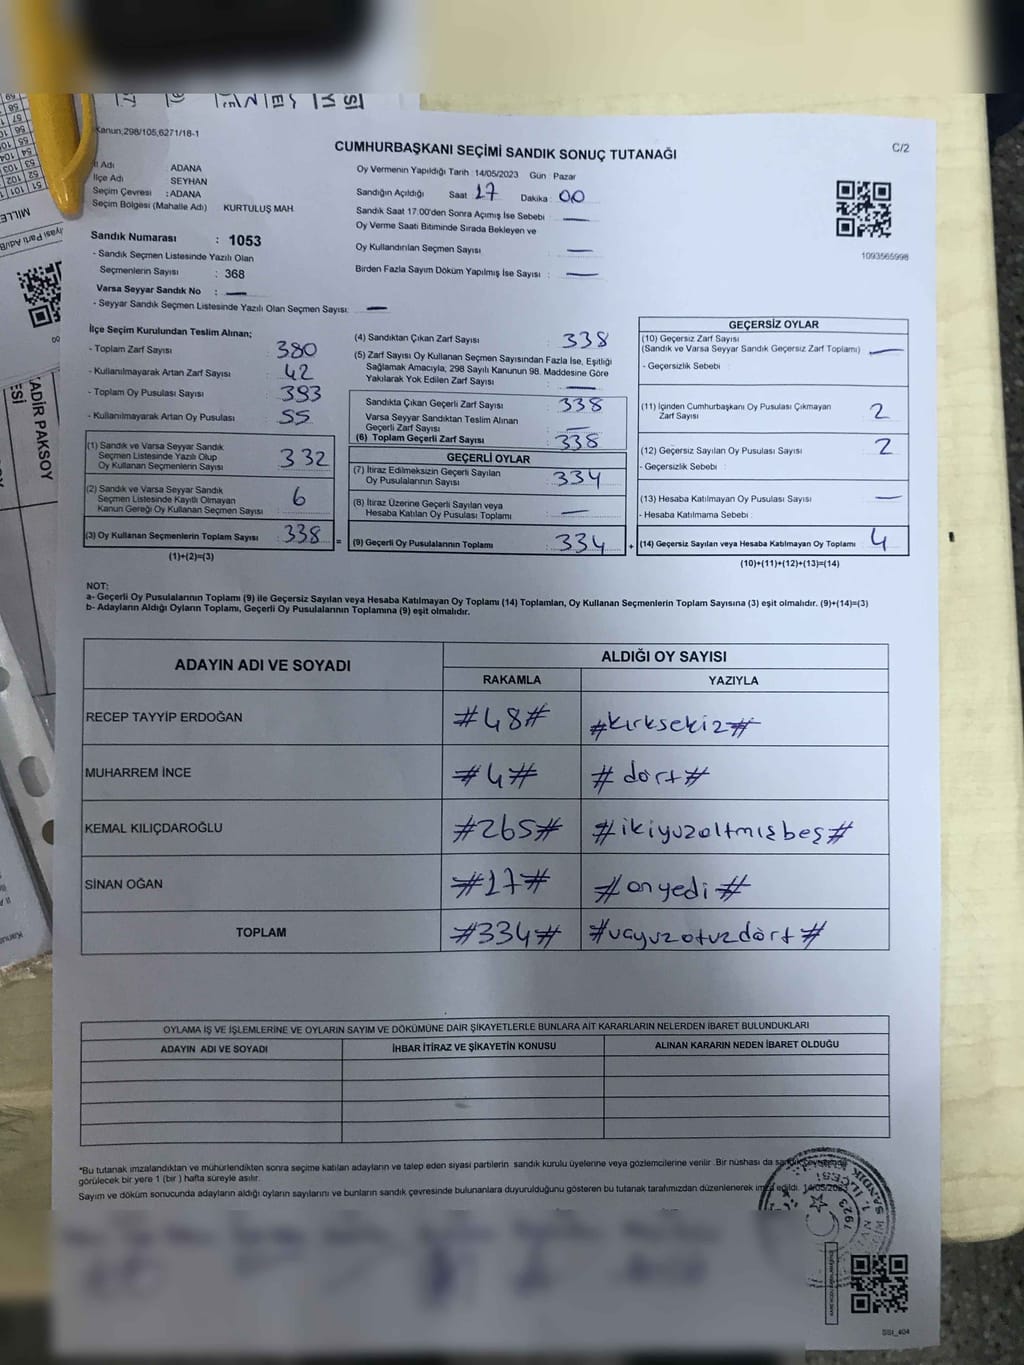 Kanun,298/105,6271/18-1
CUMHURBAŞKANI SEÇİMİ SANDIK SONUÇ TUTANAĞI
C/2
İl Adı ADANA
İlçe Adı SEYHAN
Seçim Çevresi : ADANA
Seçim Bölgesi (Mahalle Adı) KURTULUŞ MAH.
Oy Vermenin Yapıldığı Tarih : 14/05/2023 Gün : Pazar
Sandığın Açıldığı Saat 17 Dakika : 00
Sandık Saat 17:00'den Sonra Açımış İse Sebebi : —
Oy Verme Saati Bitiminde Sırada Bekleyen ve
Oy Kullandırılan Seçmen Sayısı —
Birden Fazla Sayım Döküm Yapılmış İse Sayısı : —
1093565998
Sandık Numarası : 1053
- Sandık Seçmen Listesinde Yazılı Olan
Seçmenlerin Sayısı : 368
Varsa Seyyar Sandık No : —
- Seyyar Sandık Seçmen Listesinde Yazılı Olan Seçmen Sayısı: —
İlçe Seçim Kurulundan Teslim Alınan;
- Toplam Zarf Sayısı 380
- Kullanılmayarak Artan Zarf Sayısı : 42
- Toplam Oy Pusulası Sayısı : 393
- Kullanılmayarak Artan Oy Pusulası : 55
(1) Sandık ve Varsa Seyyar Sandık
Seçmen Listesinde Yazılı Olup
Oy Kullanan Seçmenlerin Sayısı : 332
(2) Sandık ve Varsa Seyyar Sandık
Seçmen Listesinde Kayıtlı Olmayan
Kanun Gereği Oy Kullanan Seçmen Sayısı : 6
(3) Oy Kullanan Seçmenlerin Toplam Sayısı : 338 =
(1)+(2)=(3)
(4) Sandıktan Çıkan Zarf Sayısı : 338
(5) Zarf Sayısı Oy Kullanan Seçmen Sayısından Fazla İse, Eşitliği
Sağlamak Amacıyla, 298 Sayılı Kanunun 98. Maddesine Göre
Yakılarak Yok Edilen Zarf Sayısı : —
Sandıkta Çıkan Geçerli Zarf Sayısı : 338
Varsa Seyyar Sandıktan Teslim Alınan
Geçerli Zarf Sayısı : —
(6) Toplam Geçerli Zarf Sayısı : 338
GEÇERLİ OYLAR
(7) İtiraz Edilmeksizin Geçerli Sayılan
Oy Pusulalarının Sayısı : 334
(8) İtiraz Üzerine Geçerli Sayılan veya
Hesaba Katılan Oy Pusulası Toplamı : —
(9) Geçerli Oy Pusulalarının Toplamı : 334 +
GEÇERSİZ OYLAR
(10) Geçersiz Zarf Sayısı
(Sandık ve Varsa Seyyar Sandık Geçersiz Zarf Toplamı) : —
- Geçersizlik Sebebi :
(11) İçinden Cumhurbaşkanı Oy Pusulası Çıkmayan
Zarf Sayısı : 2
(12) Geçersiz Sayılan Oy Pusulası Sayısı : 2
- Geçersizlik Sebebi :
(13) Hesaba Katılmayan Oy Pusulası Sayısı : —
- Hesaba Katılmama Sebebi :
(14) Geçersiz Sayılan veya Hesaba Katılmayan Oy Toplamı : 4
(10)+(11)+(12)+(13)=(14)
NOT:
a- Geçerli Oy Pusulalarının Toplamı (9) ile Geçersiz Sayılan veya Hesaba Katılmayan Oy Toplamı (14) Toplamları, Oy Kullanan Seçmenlerin Toplam Sayısına (3) eşit olmalıdır. (9)+(14)=(3)
b- Adayların Aldığı Oyların Toplamı, Geçerli Oy Pusulalarının Toplamına (9) eşit olmalıdır.
ADAYIN ADI VE SOYADI ALDIĞI OY SAYISI
RAKAMLA YAZIYLA
RECEP TAYYİP ERDOĞAN #48# #kırksekiz#
MUHARREM İNCE #4# #dört#
KEMAL KILIÇDAROĞLU #265# #ikiyuzaltmışbeş#
SİNAN OĞAN #17# #onyedi#
TOPLAM #334# #üçyuzotuzdört#
OYLAMA İŞ VE İŞLEMLERİNE VE OYLARIN SAYIM VE DÖKÜMÜNE DAİR ŞİKAYETLERLE BUNLARA AİT KARARLARIN NELERDEN İBARET BULUNDUKLARI
ADAYIN ADI VE SOYADI İHBAR İTİRAZ VE ŞİKAYETİN KONUSU ALINAN KARARIN NEDEN İBARET OLDUĞU
*Bu tutanak imzalandıktan ve mühürlendikten sonra seçime katılan adayların ve talep eden siyasi partilerin sandık kurulu üyelerine veya gözlemcilerine verilir. Bir nüshası da
görülecek bir yere 1 (bir ) hafta süreyle asılır.
Sayım ve döküm sonucunda adayların aldığı oyların sayılarını ve bunların sandık çevresinde bulunanlara duyurulduğunu gösteren bu tutanak tarafımızdan düzenlenerek imza edildi. 14/05/2023
SSI_404
KADİR PAKSOY